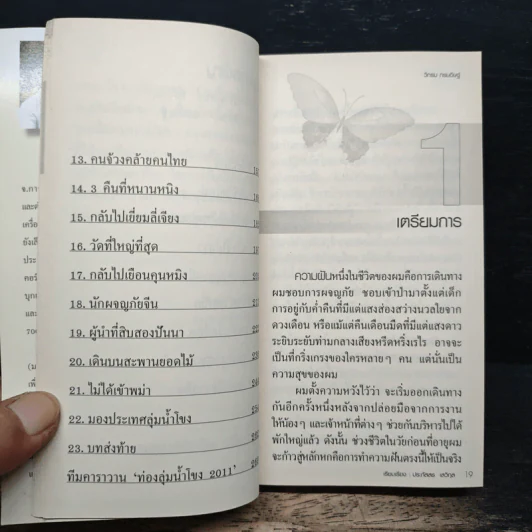 13. คนจ้วงคล้ายคนไทย
14. 3 คืนที่หนานหนิง
15. กลับไปเยี่ยมลี่เจียง
16. วัดที่ใหญ่ที่สุด
17. กลับไปเยือนคุนหมิง
18. นักผจญภัยจีน
19. ผู้นำที่สิบสองปันนา
20. เดินบนสะพานยอดไม้
21. ไม่ได้เข้าพม่า
22. มองประเทศลุ่มน้ำโขง
23. บทส่งท้าย
ทีมคาราวาน ‘ท่องลุ่มน้ำโขง 2011’
วิกรม กรมดิษฐ์
1
เตรียมการ
ความฝันหนึ่งในชีวิตของผมคือการเดินทาง
ผมชอบการผจญภัย ชอบเข้าป่ามาตั้งแต่เด็ก
การอยู่กับค่ำคืนที่มีแต่แสงส่องสว่างนวลใยจาก
ดวงเดือน หรือแม้แต่คืนเดือนมืดที่มีแต่แสงดาว
ระยิบระยับท่ามกลางเสียงหรีดหริ่งเรไร อาจจะ
เป็นที่กริ่งเกรงของใครหลายๆ คน แต่นั่นเป็น
ความสุขของผม
ผมตั้งความหวังไว้ว่า จะเริ่มออกเดินทาง
กันอีกครั้งหนึ่งหลังจากปล่อยมือจากการงาน
ให้น้องๆ และเจ้าหน้าที่ต่างๆ ช่วยกันบริหารไปได้
พักใหญ่แล้ว ดังนั้น ช่วงชีวิตในวัยก่อนที่อายุผม
จะก้าวสู่หลักหกคือการทำความฝันตรงนี้ให้เป็นจริง
เรียบเรียง : ประภัสสร เสวิกุล 19